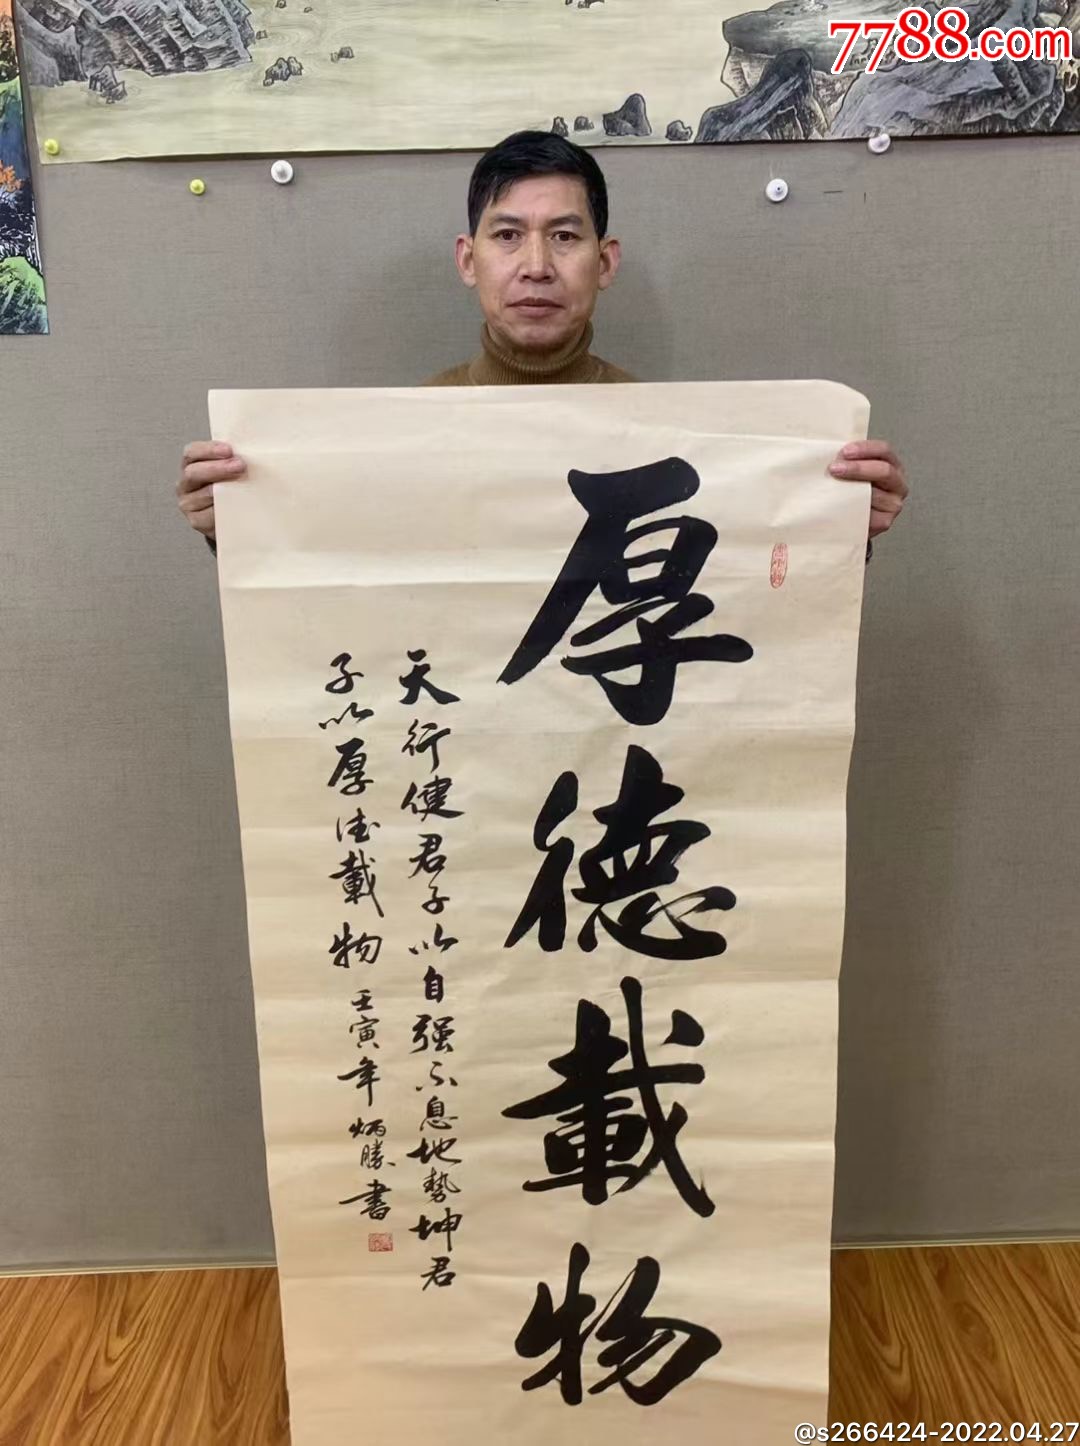 7788.com
厚德載物
天行健君子以自强不息地勢坤君
子以厚德載物 壬寅年 炳勝書
@s266424-2022.04.27